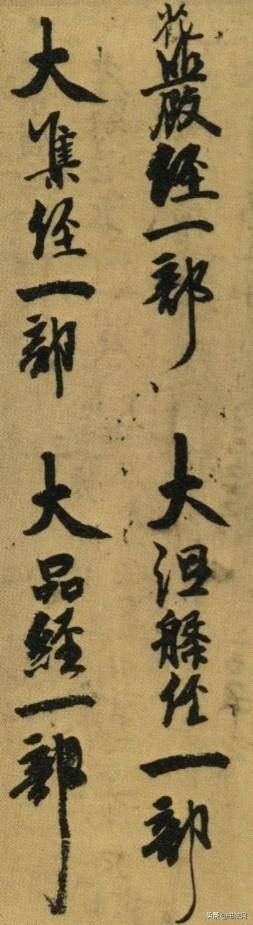 花嚴經一部 大涅槃經一部
大集經一部 大品經一部
头条 @书法网